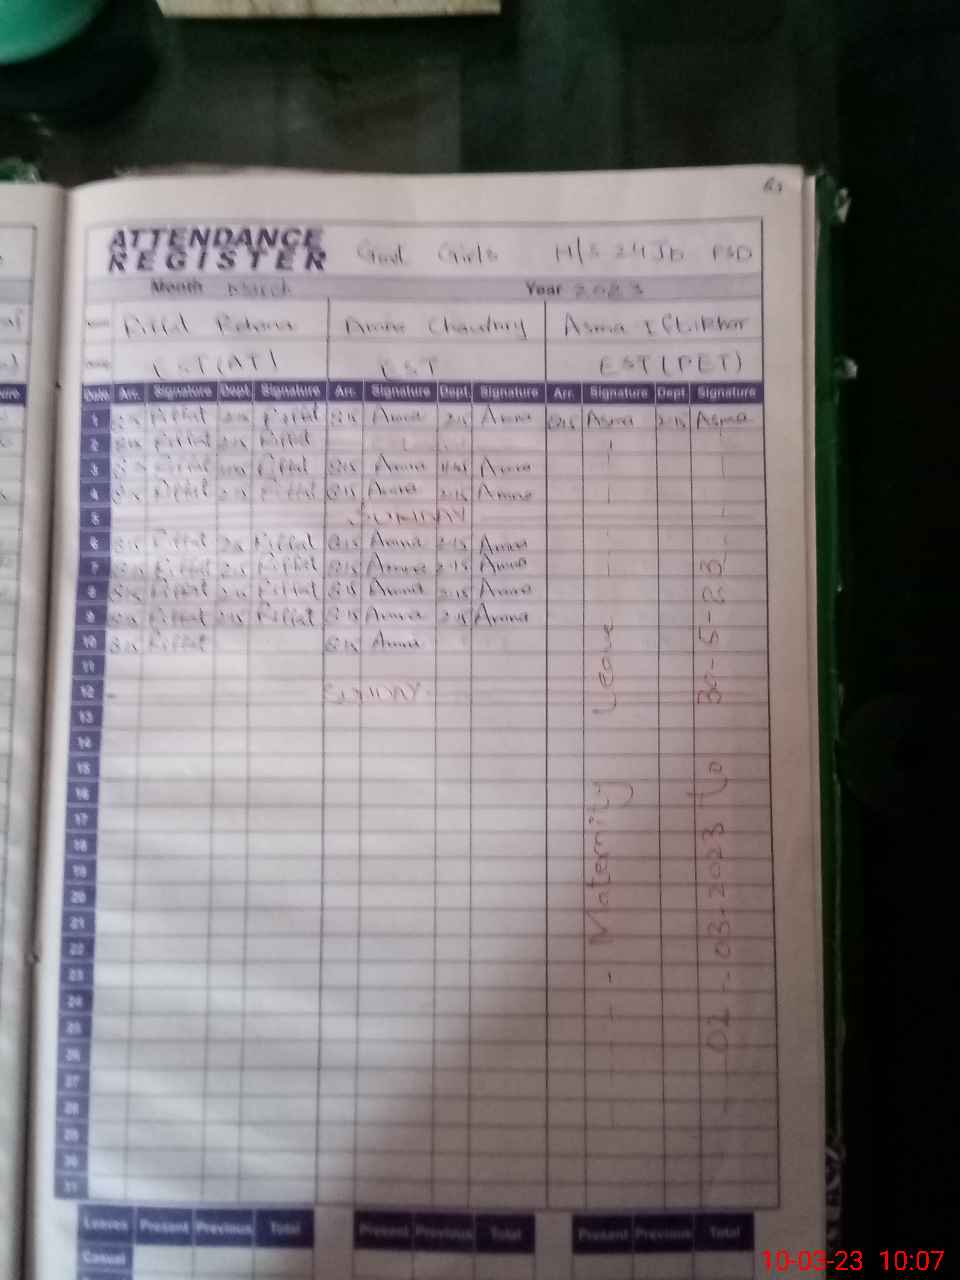 ATTENDANCE
REGISTER Govt Girls H/S 24 JB FSD
Month March Year 2023
Riffat Rehana Amna Chaudhry Asma Iftikhar
EST (AT) EST EST (PET)
Date Arr. Signature Dept. Signature Arr. Signature Dept. Signature Arr. Signature Dept. Signature
1 8:15 Riffat 2:15 Riffat 8:15 Amna 2:15 Amna 8:15 Asma 2:15 Asma
2 8:15 Riffat 2:15 Riffat
3 Riffat Riffat 8:15 Amna Amna
4 8:15 Riffat 2:15 Riffat 8:15 Amna 2:15 Amna
5 SUNDAY
6 8:15 Riffat 2:15 Riffat 8:15 Amna 2:15 Amna
7 8:15 Riffat 2:15 Riffat 8:15 Amna 2:15 Amna
8 8:15 Riffat 2:15 Riffat 8:15 Amna 2:15 Amna
9 8:15 Riffat 2:15 Riffat 8:15 Amna 2:15 Amna
10 8:15 Riffat 8:15 Amna
11
12 SUNDAY
13
14
15
16
17
18
19
20
21
22
23
24
25
26
27
28
29
30
31
Maternity Leave
02-03-2023 to 30-5-23
Leaves Present Previous Total Present Previous Total Present Previous Total
Casual
10-03-23 10:07